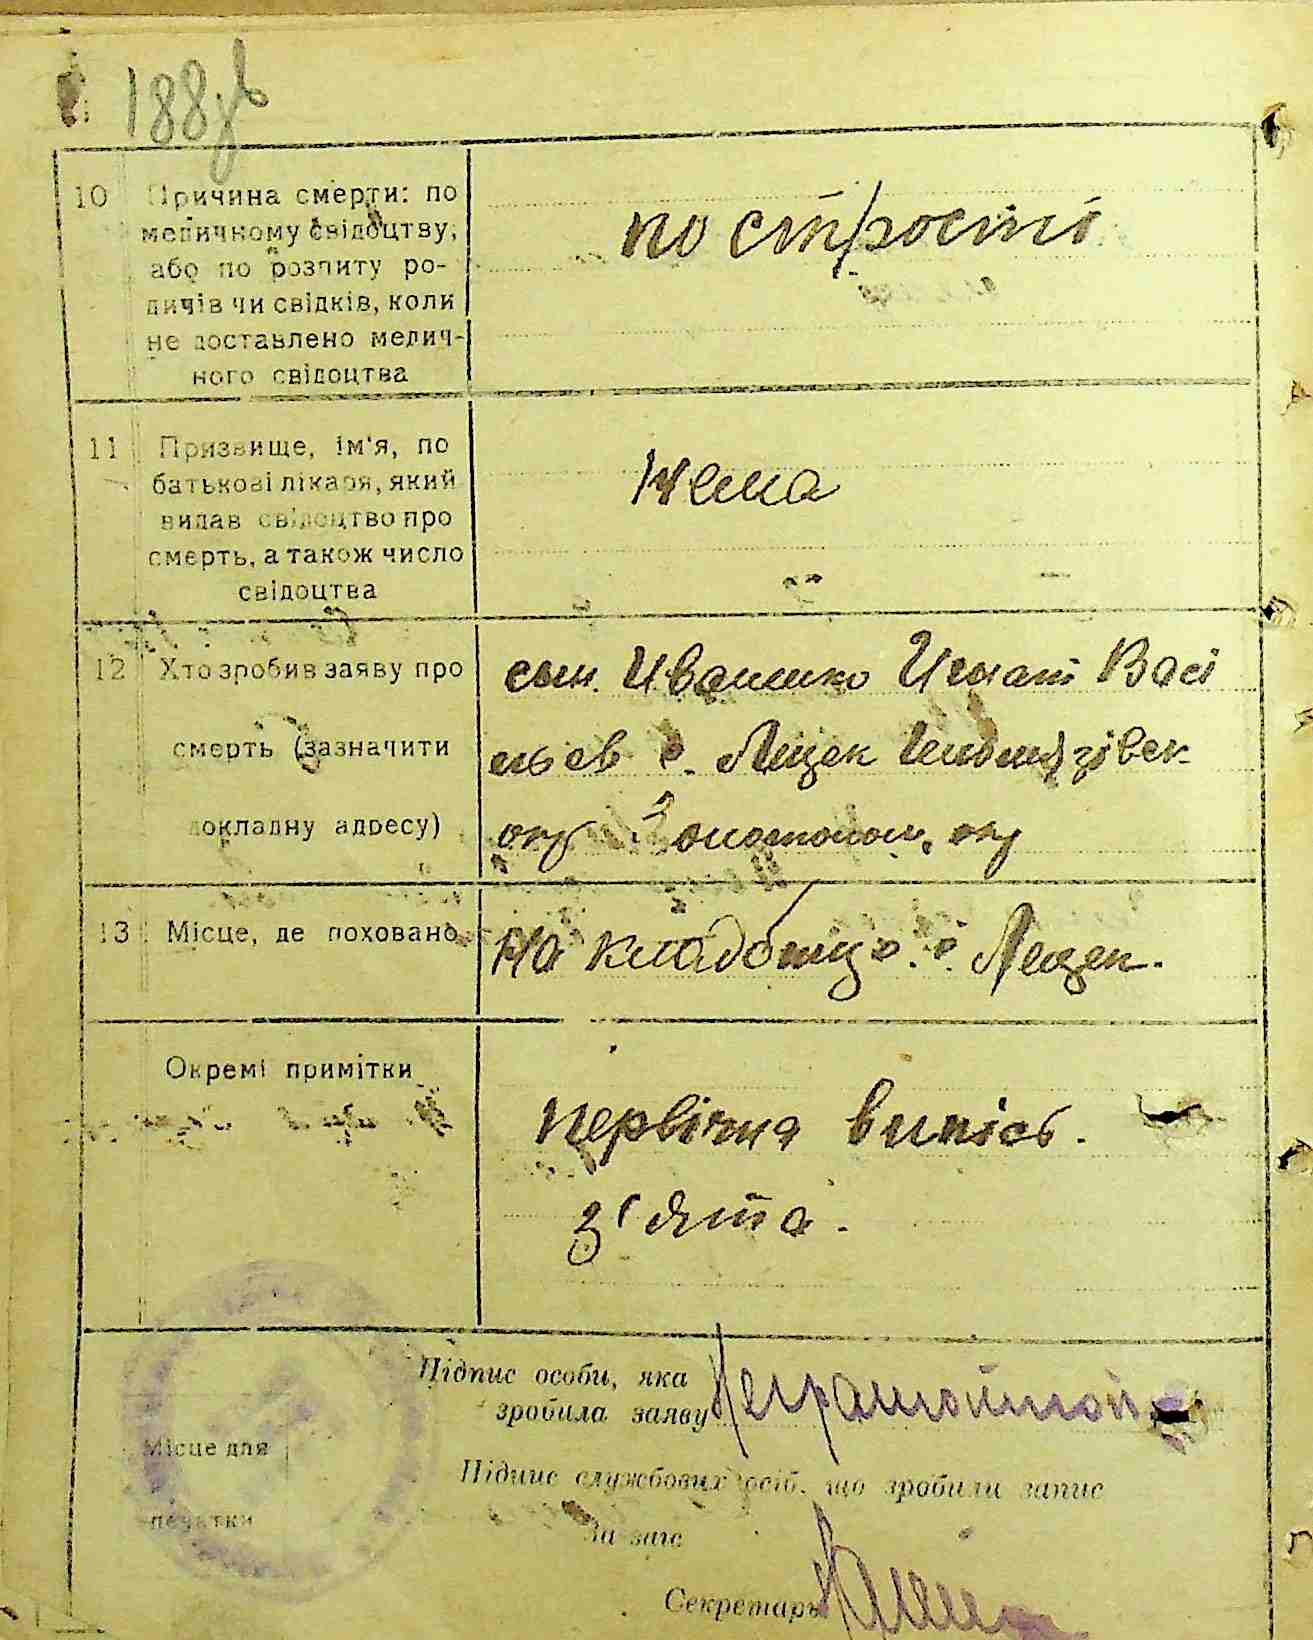 188зв
10 Причина смерти: по
медичному свідоцтву,
або по розпиту ро-
дичів чи свідків, коли
не доставлено медич-
ного свідоцтва
по старості
11 Призвище, ім'я, по
батькові лікаря, який
видав свідоцтво про
смерть, а також число
свідоцтва
нема
12 Хто зробив заяву про
смерть (зазначити
докладну адресу)
сын. Ивашко Игнат Васі
льев с.
окр
13 Місце, де поховано
на кладбищ с.
Окремі примітки
первічна випісь.
з'ята.
Підпис особи, яка
зробила заяву
Місце для
печатки
Підпис службових осіб, що зробили запис
За загс
Секретарь